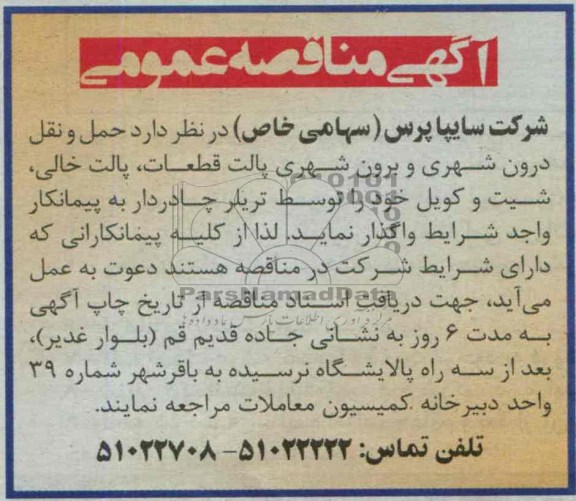 آگهی مناقصه عمومی
شرکت سایپا پرس (سهامی خاص) در نظر دارد حمل و نقل
درون شهری و برون شهری پالت قطعات، پالت خالی،
شیت و کویل خود را توسط تریلر چادردار به پیمانکار
واجد شرایط واگذار نماید. لذا از کلیه پیمانکارانی که
دارای شرایط شرکت در مناقصه هستند دعوت به عمل
می‌آید، جهت دریافت اسناد مناقصه از تاریخ چاپ آگهی
به مدت ۶ روز به نشانی جاده قدیم قم (بلوار غدیر)،
بعد از سه راه پالایشگاه نرسیده به باقرشهر شماره ۳۹
واحد دبیرخانه کمیسیون معاملات مراجعه نمایند.
تلفن تماس: ۵۱۰۲۲۲۲۲- ۵۱۰۲۲۷۰۸
ParsNamadData